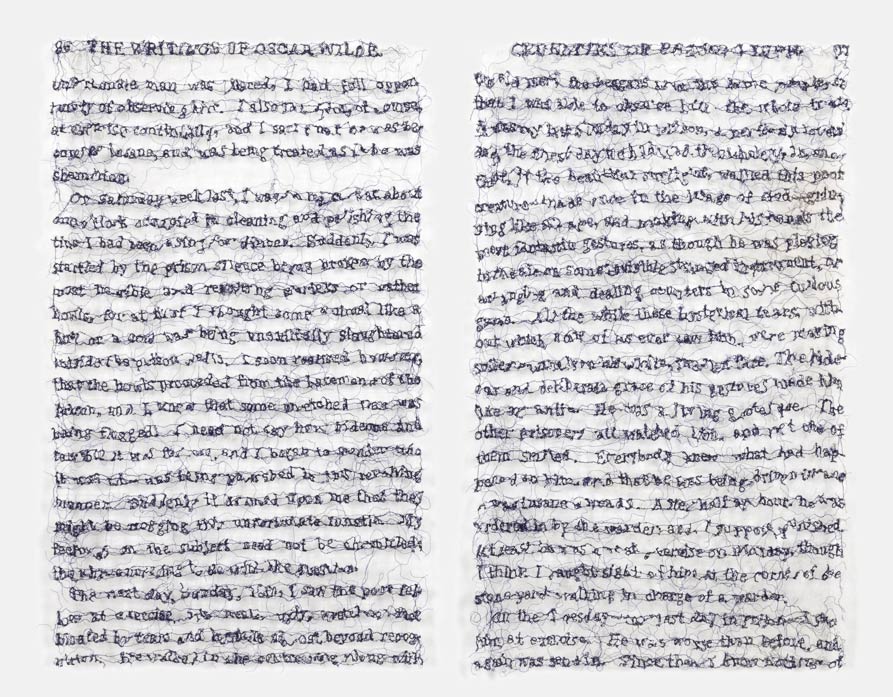 THE WRITINGS OF OSCAR WILDE
unfortunate man was placed, I had full oppor-
tunity of observing him. I also saw him, of course,
at exercise continually, and I saw that he was be-
coming insane, and was being treated as if he was
shamming.
On Saturday week last, I was in my cell at about
one o'clock occupied in cleaning and polishing the
tins I had been using for dinner. Suddenly, I was
startled by the prison silence being broken by the
most horrible and revolting shrieks or rather
howls, for at first I thought some animal like a
bull or a cow was being unskilfully slaughtered
outside the prison walls. I soon realised however,
that the howls proceeded from the basement of the
prison, and I knew that some wretched man was
being flogged. I need not say how hideous and
terrible it was for me, and I began to wonder who
it was who was being punished in this revolting
manner. Suddenly it dawned upon me that they
might be flogging this unfortunate lunatic. My
feelings on the subject need not be chronicled;
they have nothing to do with the question.
The next day, Sunday, 16th, I saw the poor fel-
low at exercise, his weak, ugly, wretched face
bloated by tears and hysteria almost beyond recog-
nition. He walked in the centre ring along with
CRUELTIES OF PRISON LIFE
the old men, the beggars and the lame people, so
that I was able to observe him the whole time.
It was my last Sunday in prison, a perfectly lovely
day, the finest day we had had the whole year, and
there, in the beautiful sunlight, walked this poor
creature made once in the image of God grin-
ning like an ape, and making with his hands the
most fantastic gestures, as though he was playing
in the air on some invisible stringed instrument, or
arranging and dealing counters in some curious
game. All the while these hysterical tears, with-
out which none of us ever saw him, were making
soiled runnels on his white, swollen face. The hide-
ous and deliberate grace of his gestures made him
like an antic. He was a living grotesque. The
other prisoners all watched him, and not one of
them smiled. Everybody knew what had hap-
pened to him and that he was being driven insane
was insane already. After half an hour he was
ordered in by the warder and I suppose punished.
At least he was not at exercise on Monday, though
I think I caught sight of him at the corner of the
stone-yard walking in charge of a warder.
On the Tuesday my last day in prison I saw
him at exercise. He was worse than before, and
again was sent in. Since then I know nothing of